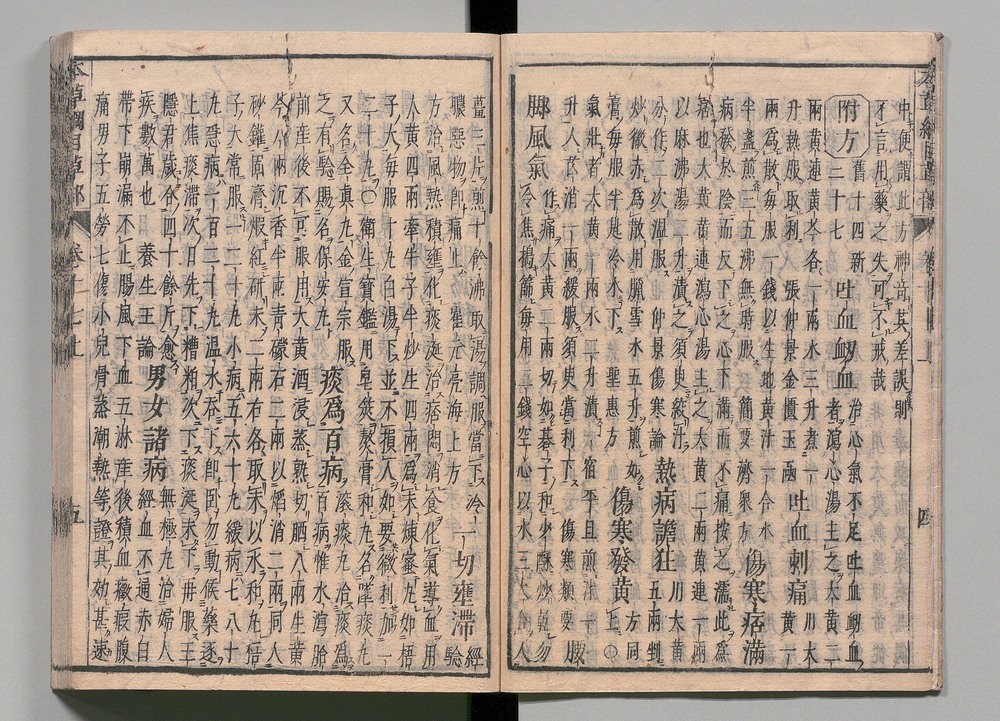 中便謂此方神奇其差誤則
不言用藥之失可不戒哉
附方舊十四新二十七吐血衂血治心氣不足吐血衂血者瀉心湯主之大黃二
兩黃連黃芩各一兩水三升煮一升熱服取利張仲景金匱玉函吐血刺痛川大黃一
兩爲散每服一錢以生地黃汁一合水半盞煎三五沸無時服簡要濟衆方傷寒痞滿
病發於陰而反下之心下滿而不痛按之濡此爲痞也大黃黃連瀉心湯主之大黃二兩黃連一兩
以麻沸湯二升漬之須臾絞汁分作二次溫服仲景傷寒論熱病譫狂川大黃五兩剉
炒微赤爲散用臘雪水五升煎如膏每服半匙冷水下聖惠方傷寒發黃方同上○
氣壯者大黃一兩水二升漬一宿平旦煎一升入芒消一兩緩服須臾當利下傷寒類要腰
脚風氣作痛大黃二兩切如棊子和少酥炒乾勿令焦搗篩每用二錢空心以水三大合入
薑三片煎十餘沸取湯調服當下冷膿惡物卽痛止崔元亮海上方一切壅滯經驗
方治風熱積壅化痰涎治痞悶消食化氣導血用大黃四兩牽牛子半炒半生四兩爲末煉蜜丸如梧
子大每服十丸白湯下並不損人如要微利加一二十丸○衛生寶鑑用皂莢熬膏和丸名墜痰丸
又名全真丸金宣宗服之有驗賜名保安丸痰爲百病滾痰丸治痰爲百病惟水瀉胎
前產後不可服用大黃酒浸蒸熟切晒八兩生黃芩八兩沉香半兩青礞石二兩以焰消二兩同入
砂鑵固濟煅紅研末二兩右各取末以水和丸梧子大常服一二十丸小病五六十丸緩病七八十
丸急病一百二十丸溫水吞下卽臥勿動候藥逐上焦痰滯次日先下糟粕次下痰涎未下再服王
隱君歲合四十餘斤愈疾數萬也養生主論男女諸病無極丸治婦人經血不通赤白
帶下崩漏不止腸風下血五淋產後積血癥瘕腹痛男子五勞七傷小兒骨蒸潮熱等證其効甚速